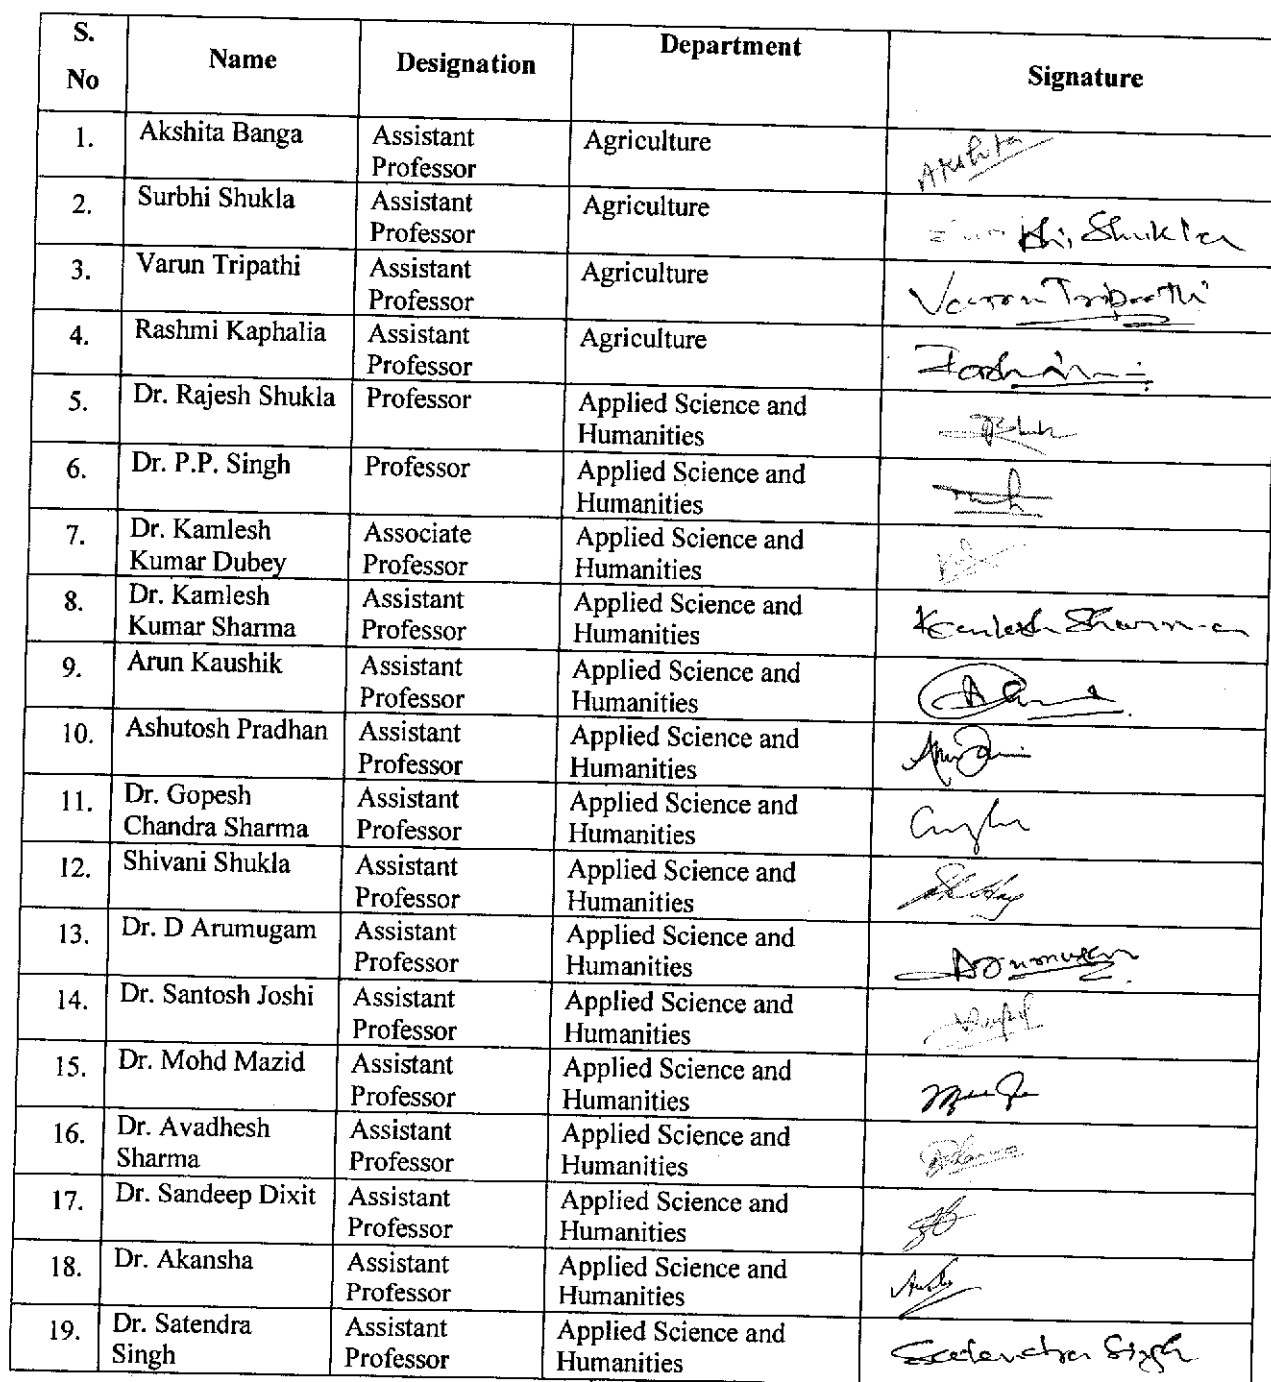 S.
No
Name
Designation
Department
Signature
1.
Akshita Banga
Assistant
Professor
Agriculture
Akshita
2.
Surbhi Shukla
Assistant
Professor
Agriculture
Shukla
3.
Varun Tripathi
Assistant
Professor
Agriculture
Varun Tripathi
4.
Rashmi Kaphalia
Assistant
Professor
Agriculture
Rashmi
5.
Dr. Rajesh Shukla
Professor
Applied Science and
Humanities
6.
Dr. P.P. Singh
Professor
Applied Science and
Humanities
7.
Dr. Kamlesh
Kumar Dubey
Associate
Professor
Applied Science and
Humanities
8.
Dr. Kamlesh
Kumar Sharma
Assistant
Professor
Applied Science and
Humanities
Kamlesh Sharma
9.
Arun Kaushik
Assistant
Professor
Applied Science and
Humanities
10.
Ashutosh Pradhan
Assistant
Professor
Applied Science and
Humanities
11.
Dr. Gopesh
Chandra Sharma
Assistant
Professor
Applied Science and
Humanities
12.
Shivani Shukla
Assistant
Professor
Applied Science and
Humanities
13.
Dr. D Arumugam
Assistant
Professor
Applied Science and
Humanities
14.
Dr. Santosh Joshi
Assistant
Professor
Applied Science and
Humanities
15.
Dr. Mohd Mazid
Assistant
Professor
Applied Science and
Humanities
16.
Dr. Avadhesh
Sharma
Assistant
Professor
Applied Science and
Humanities
17.
Dr. Sandeep Dixit
Assistant
Professor
Applied Science and
Humanities
18.
Dr. Akansha
Assistant
Professor
Applied Science and
Humanities
19.
Dr. Satendra
Singh
Assistant
Professor
Applied Science and
Humanities
Satendra Singh